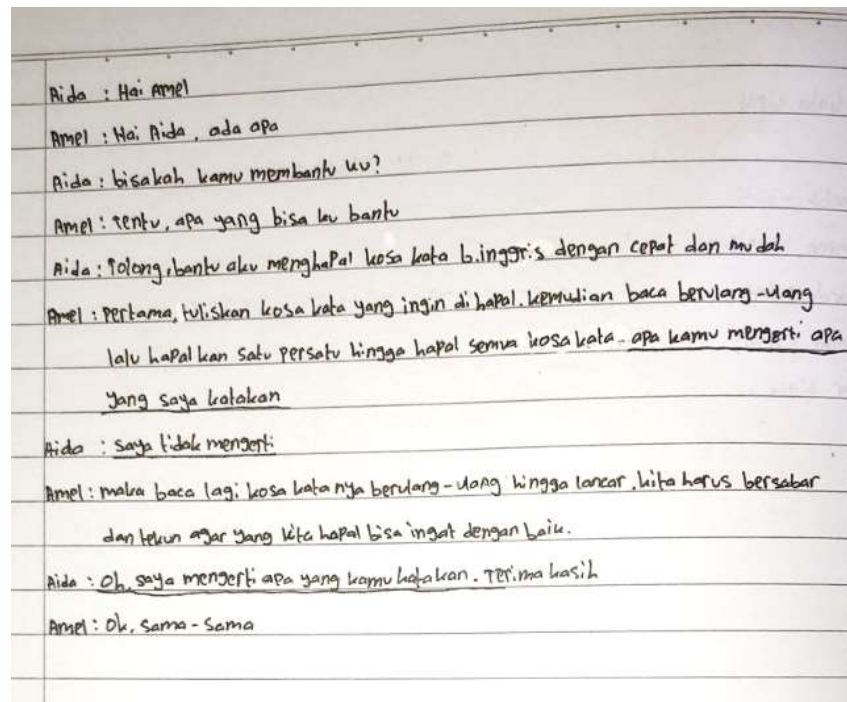 Aida : Hai Amel
Amel : Hai Aida, ada apa
Aida : bisakah kamu membantu ku?
Amel : tentu, apa yang bisa ku bantu
Aida : Tolong, bantu aku menghapal kosa kata b.inggris dengan cepat dan mudah
Amel : pertama, tuliskan kosa kata yang ingin di hapal. kemudian baca berulang-ulang
lalu hapal kan satu persatu hingga hapal semua kosa kata. apa kamu mengerti apa
yang saya katakan
Aida : saya tidak mengerti
Amel : maka baca lagi kosa kata nya berulang-ulang hingga lancar, kita harus bersabar
dan tekun agar yang kita hapal bisa ingat dengan baik.
Aida : Oh, saya mengerti apa yang kamu katakan. Terima kasih
Amel : Ok, sama-sama